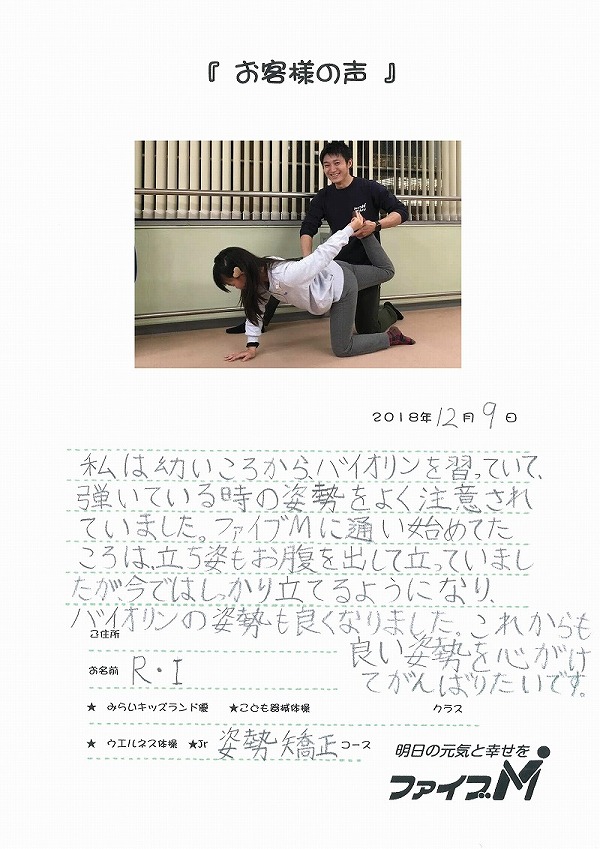 『 お客様の声 』
2018年12月9日
私は幼いころから、バイオリンを習っていて、
弾いている時の姿勢をよく注意され
ていました。ファイブMに通い始めてた
ころは、立ち姿もお腹を出して立っていまし
たが今ではしっかり立てるようになり、
バイオリンの姿勢も良くなりました。これからも
良い姿勢を心がけ
てがんばりたいです。
ご住所
お名前 R・I
★ みらいキッズランド優 ★こども器械体操 クラス
★ ウエルネス体操 ★Jr 姿勢矯正コース
明日の元気と幸せを
ファイブM